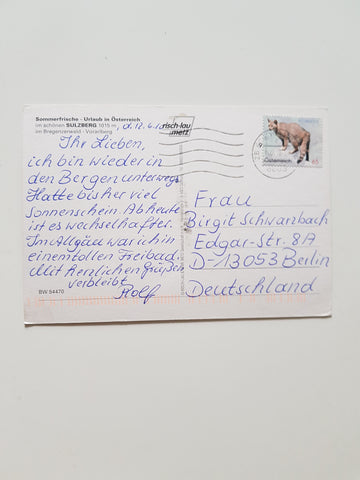 Sommerfrische - Urlaub in Österreich
im schönen SULZBERG 1015 m
im Bregenzerwald - Vorarlberg
d. 12. 6.
Ihr Lieben,
ich bin wieder in
den Bergen unterwegs.
Hatte bisher viel
Sonnenschein. Ab heute
ist es wechselhafter.
Im Allgäu war ich in
einem tollen Freibad.
Mit herzlichen Grüßen
verbleibt
Rolf
BW 54470
risch-lau
metz
Österreich
Frau
Birgit Schwarzbach
Edgar-Str. 8A
D-13053 Berlin
Deutschland